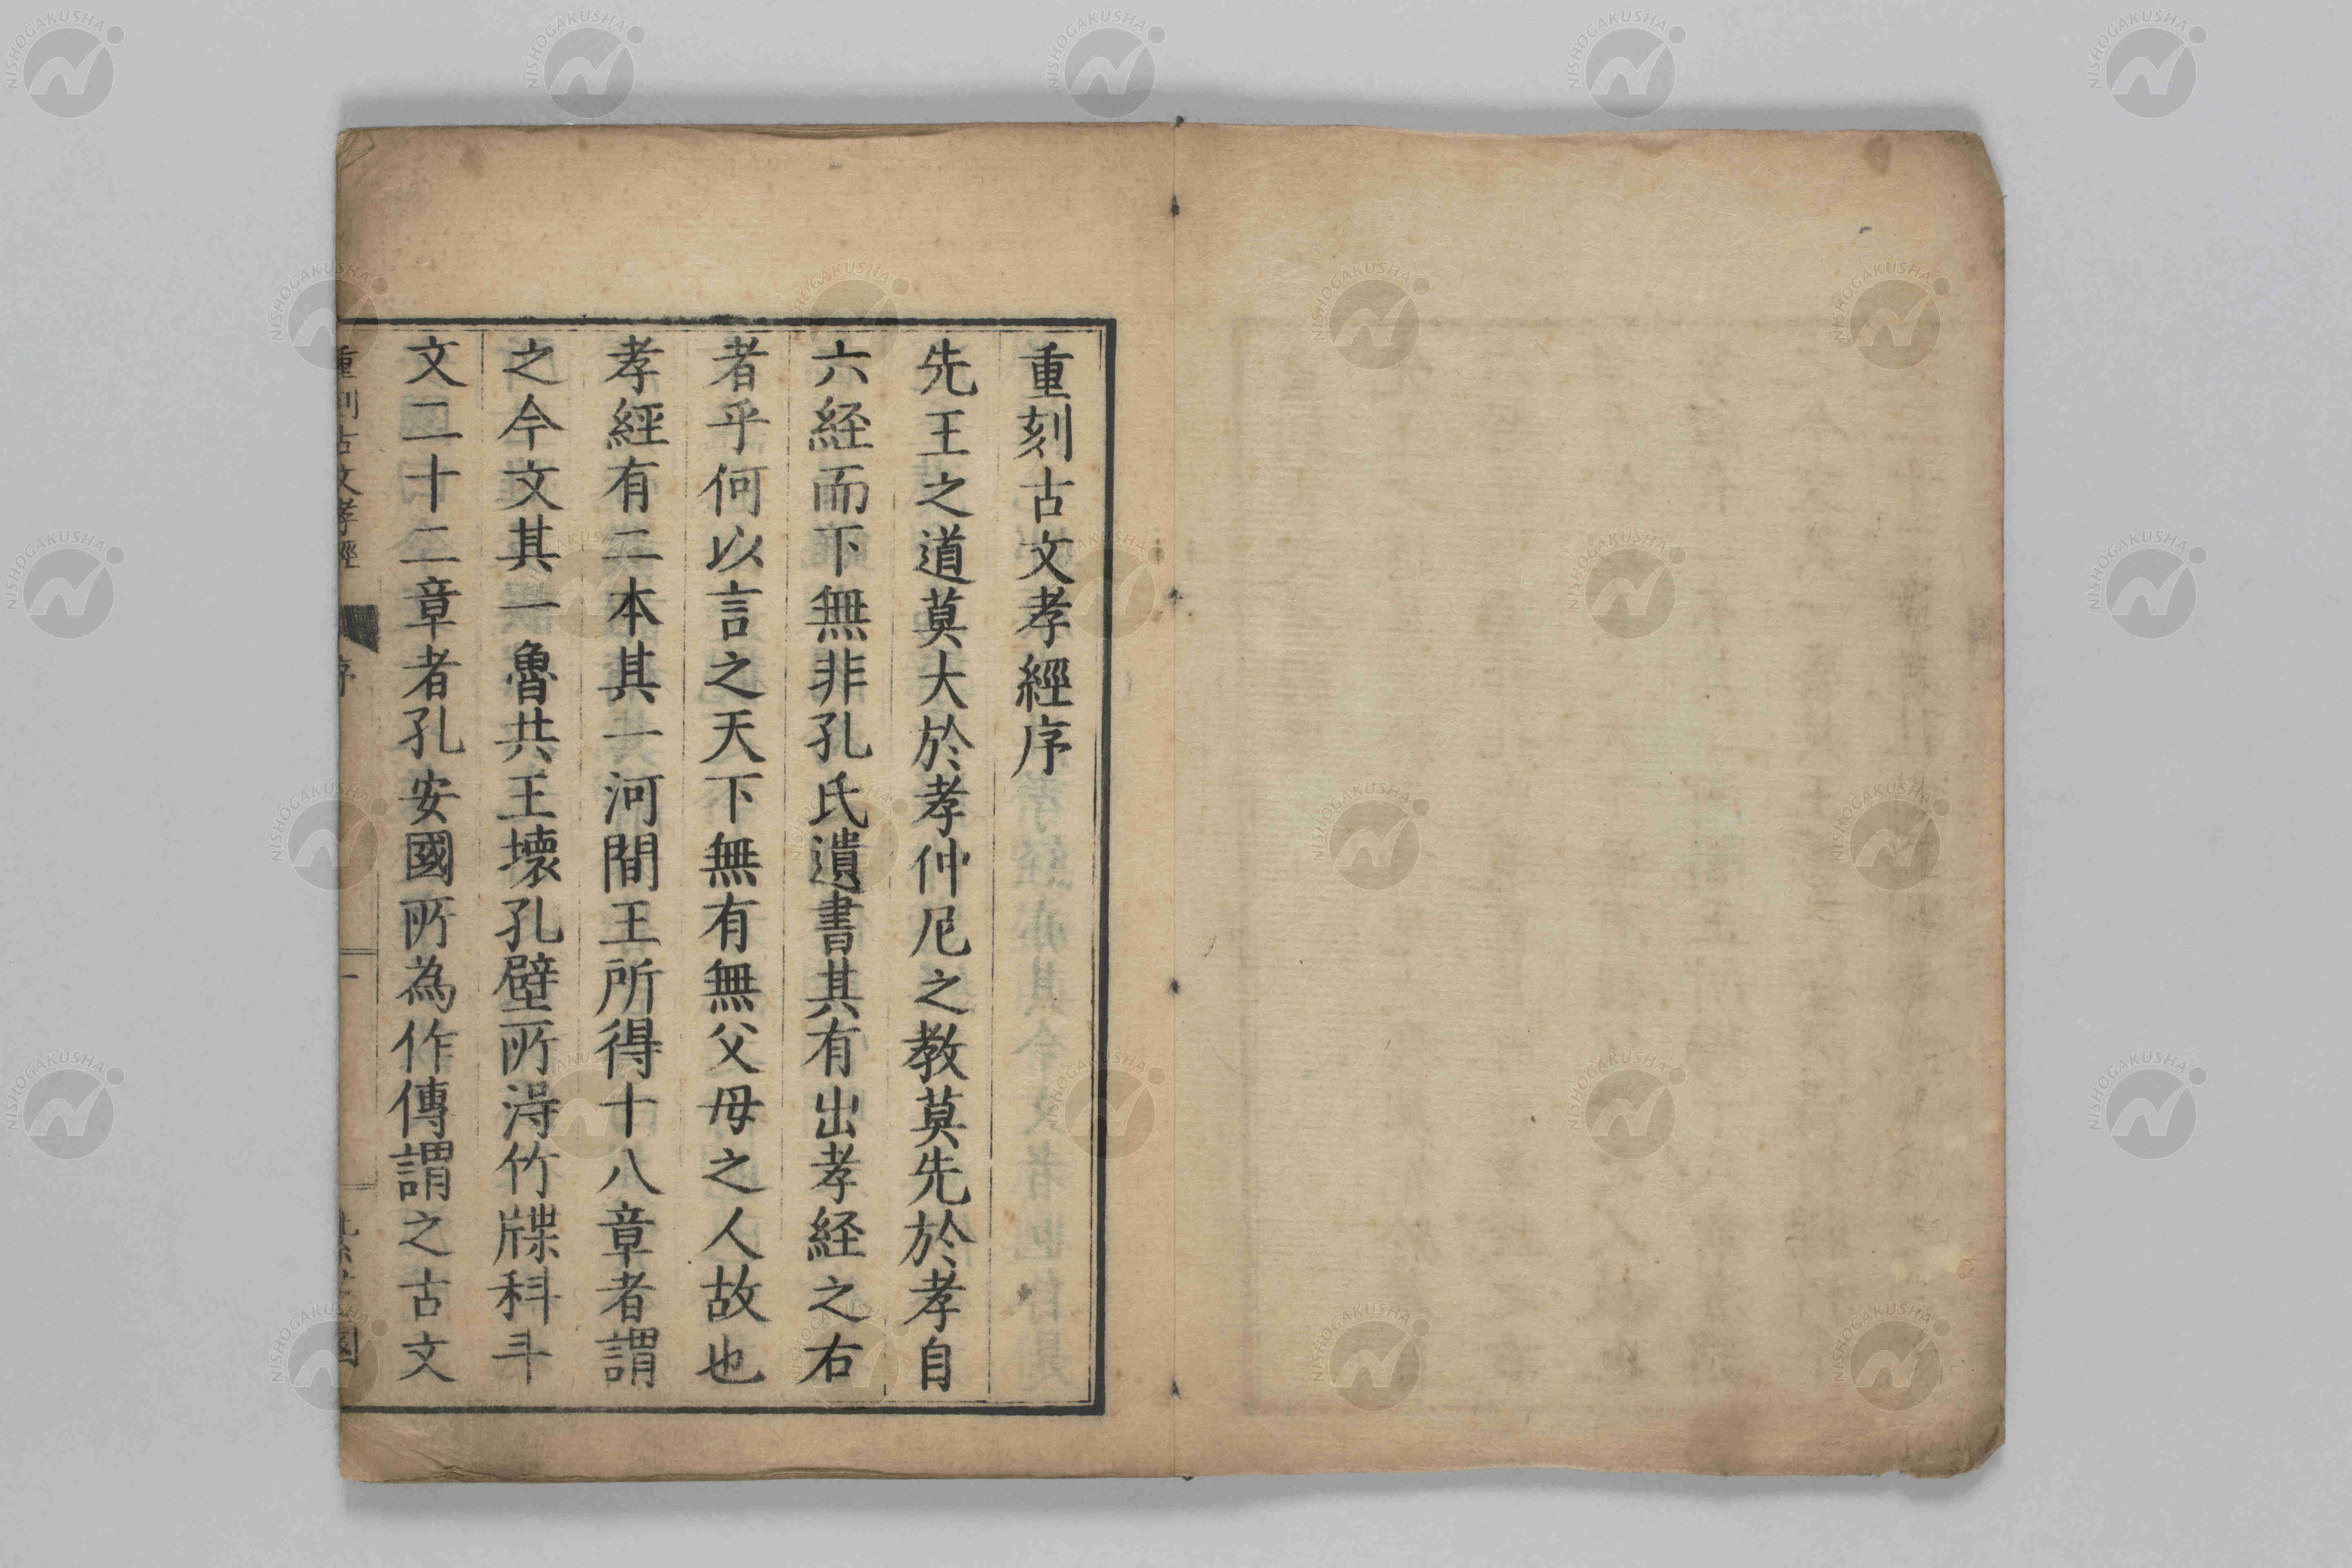 重刻古文孝經序
先王之道莫大於孝仲尼之教莫先於孝自
六経而下無非孔氏遺書其有出孝経之右
者乎何以言之天下無有無父母之人故也
孝經有二本其一河間王所得十八章者謂
之今文其一魯共王壞孔壁所淂竹牒科斗
文二十二章者孔安國所為作傳謂之古文
重刻古文孝經
序
一
NISHOGAKUSHA